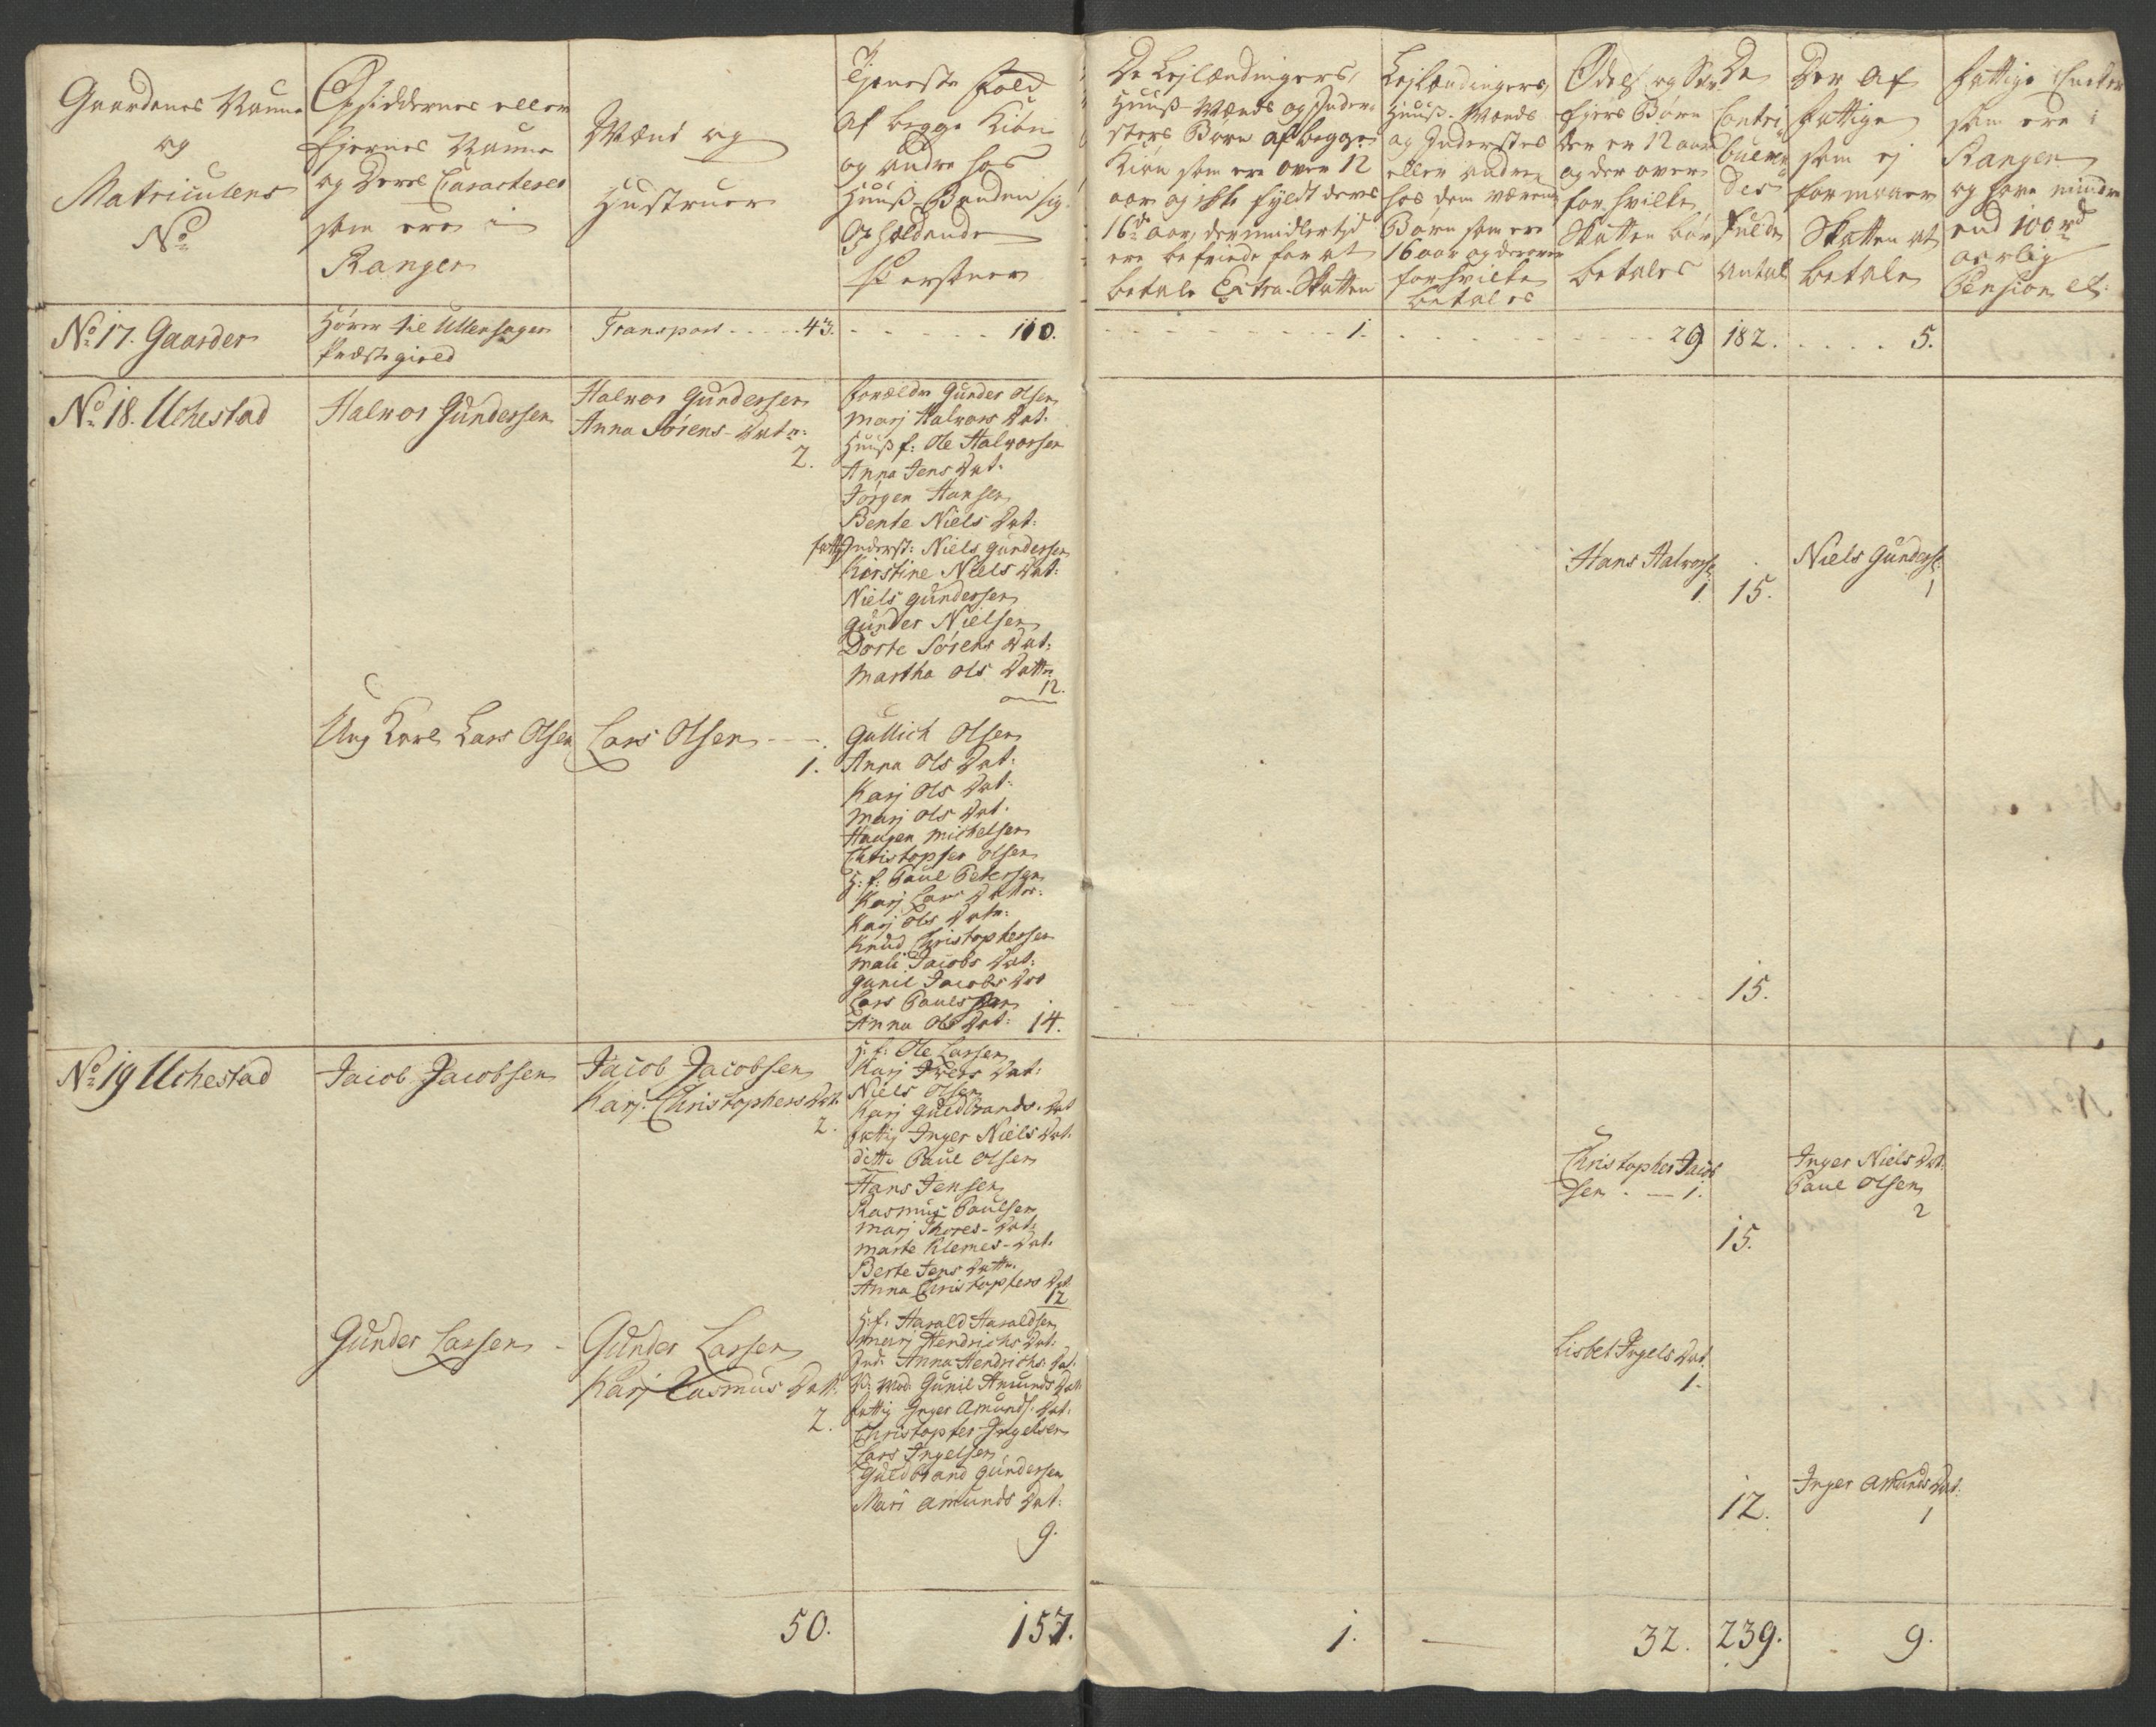 Gaardenes Naune
og
Matriculens
No
Opsiddernes eller
Ejernes Naune
og Deres Caracterer
som ere i
Rangen
Mænd og
Hustruer
Tjeneste Folk
af begge Kiøn
og andre hos
Huuß-Bonden sig
Opholdende
Persohner
De Lejlændingers,
Huuß-Mænds og Inder-
sters Børn af begge
Kiøn som ere over 12
aar og ikke fyldt deres
16de aar, der imidlertid
ere befriede for at
betale Extra-Skatten
Lejlændingers,
Huuß-Mænds
og Inderstes
eller andre
hos dem værende
Børn som ere
16 aar og derover
for hvilke
betales
Odels og
Ejers Børn
der er 12 aar
og der over
for hvilke
Skatten bør
betales
De
Contri
bueren
des
fulde
Antal
Der af
fattige
som ej
formaaer
Skatten at
betale
fattige Encker
som ere i
Rangen
og have mindre
end 100 rd
aarlig
Pension etc
No 17. Gaarder
Hører til Ullensager
Præstegield
Transport - - - - 43. - - - - - - 110. - - - - - - - - 1. - - - - - - - - 29 182. - - - - 5.
No 18. Uchestad
Halvor Gundersen
Halvor Gundersen
Anna Sørens-Datr:
2.
forældre Gunder Olsen
Marj Halvors Dat:
Huuß f: Ole Halvorsen
Anna Jens Dat:
Jørgen Hansen
Bente Niels Dat:
fattig Inderst: Niels Gundersen
Kirstine Niels Dat:
Niels Gundersen
Gunder Nielsen
Dorte Sørens Dat:
Martha Ols Dattr
12.
Hans Halvors:
1.
15.
Niels Gunders:
1
Ung Karl Lars Olsen
Lars Olsen - - -
1.
Gullich Olsen
Anna Ols Dat:
Karj Ols Dat:
Marj Ols Dat:
Haagen Michelsen
Christopher Olsen
H: f: Paul Petersen
Karj Lars Datr:
Karj Ols Datr:
Knud Christophersen
Mali Jacobs Dat:
Gunil Jacobs Dat
Lars Paulsen
Anna Ols Dat: 14.
15.
No 19 Uchestad
Jacob Jacobsen
Jacob Jacobsen
Karj: Christophers Dat:
2.
H: f: Ole Larsen
Karj Iwers Dat:
Niels Olsen
Karj Guldbrands. Dat
fattig Inger Niels Dat:
ditto Paul Olsen
Hans Jensen
Rasmus Paulsen
Marj Thores-Dat:
Marte Klemes-Dat:
Berte Jens Dattr.
Anna Christophers Dat
12
Christopher Jacob
sen - — 1.
15.
Inger Niels Dat:
Paul Olsen
2
Gunder Larsen -
Gunder Larsen
Karj Rasmus Datt:
2.
H: f: Harald Haraldsen
Marj Hendrichs Dat:
Ind: Anna Hendrichs: Dat:
Gunil Amunds Dat
fattig Inger Amunds: Dat:
Christopher Ingelsen
Lars Ingelsen
Guldbrand Gundersen
Mari Amunds Dat:
9.
Lisbet Ingels Dat:
1.
12.
Inger Amunds Dat:
1
50. 157. 1. — 32. 239. - 9.